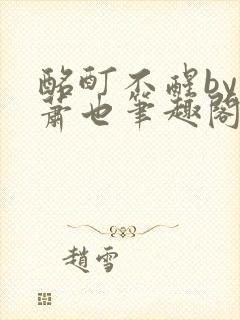 酩酊不醒by
蕭也筆趣閣
趙雪